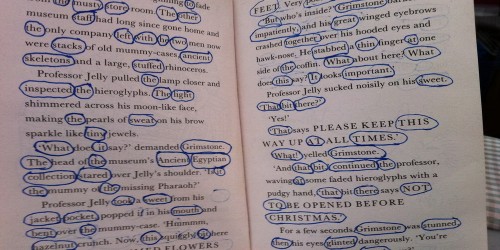 to fade
the musty store room. The other
museum staff had long since gone home and
the only company left with the two men now
were stacks of old mummy-cases, ancient
skeletons and a large, stuffed rhinoceros.
Professor Jelly pulled the lamp closer and
inspected the hieroglyphs. The light
shimmered across his moon-like face,
making the pearls of sweat on his brow
sparkle like tiny jewels.
'What does it say?' demanded Grimstone.
The head of the museum's Ancient Egyptian
collection stared over Jelly's shoulder. 'Is it
the mummy of the missing Pharaoh?'
Professor Jelly took a sweet from his
jacket pocket, popped it in his mouth and
bent over the mummy-case. 'Hmmm,
hazelnut crunch. Now, this squiggle here
FLOWERS
FEET. Very
'But who's inside?' Grimstone
impatiently, and his great winged eyebrows
crashed together over his hooded eyes and
hawk-nose. He stabbed a thin finger at one
side of the coffin. 'What about here? What
does this say? It looks important.'
Professor Jelly sucked noisily on his sweet.
'That bit there?'
'Yes!'
'That says PLEASE KEEP THIS
WAY UP AT ALL TIMES.'
'What!' yelled Grimstone.
'And that bit,' continued the professor,
waving at some faded hieroglyphs with a
pudgy hand, 'that bit there says NOT
TO BE OPENED BEFORE
CHRISTMAS.'
For a few seconds Grimstone was stunned,
then his eyes glinted dangerously. 'You're